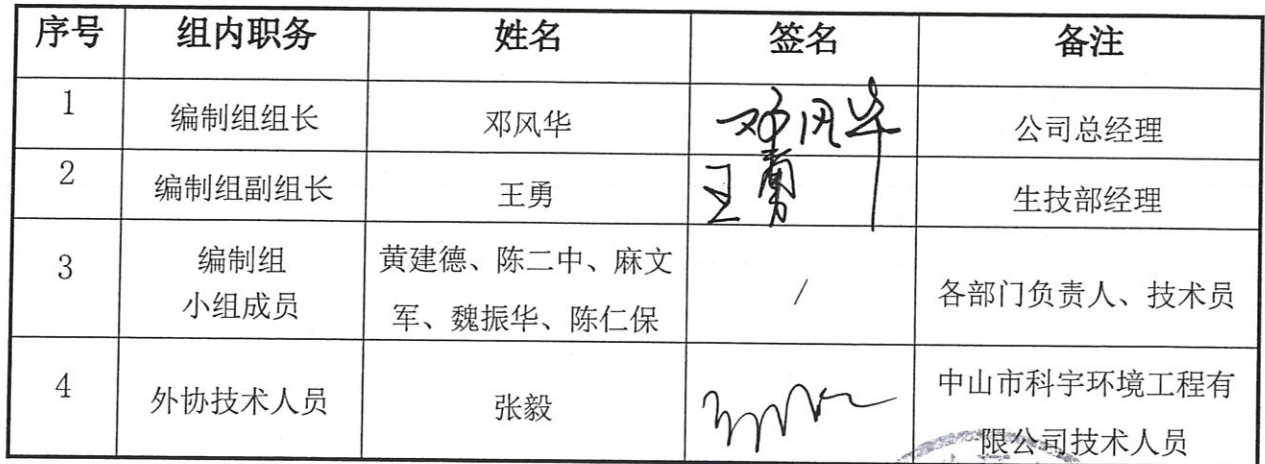 序号 组内职务 姓名 签名 备注
1 编制组组长 邓风华 邓风华 公司总经理
2 编制组副组长 王勇 王勇 生技部经理
3 编制组 小组成员 黄建德、陈二中、麻文 / 各部门负责人、技术员
军、魏振华、陈仁保
4 外协技术人员 张毅 中山市科宇环境工程有
限公司技术人员